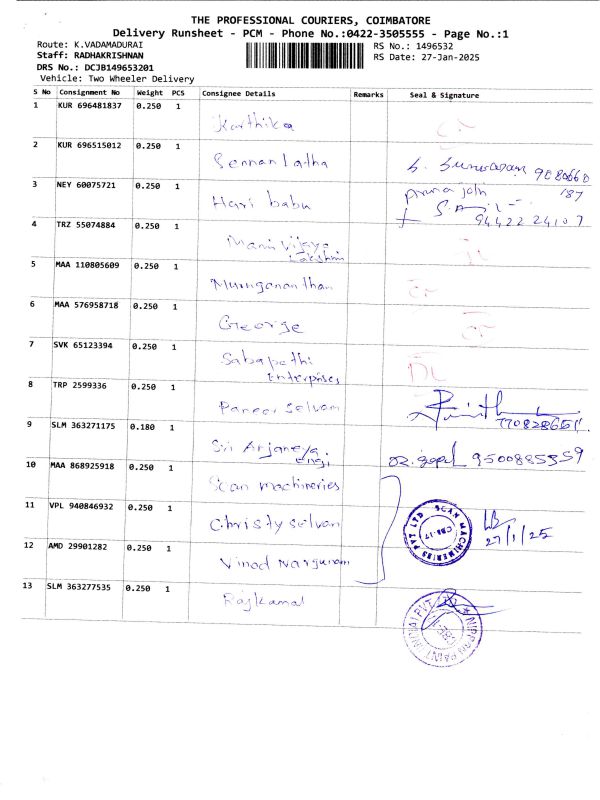 THE PROFESSIONAL COURIERS, COIMBATORE
Delivery Runsheet - PCM - Phone No.:0422-3505555 - Page No.:1
Route: K.VADAMADURAI
RS No.: 1496532
Staff: RADHAKRISHNAN
RS Date: 27-Jan-2025
DRS No.: DCJB149653201
Vehicle: Two Wheeler Delivery
S No Consignment No Weight PCS Consignee Details Remarks Seal & Signature
1 KUR 696481837 0.250 1
Karthika
2 KUR 696515012 0.250 1
Sennan Latha
3 NEY 60075721 0.250 1
Hari babu
94422 24107
4 TRZ 55074884 0.250 1
Mani Vijaya
Lakshmi
5 MAA 110805609 0.250 1
Murugananthan
6 MAA 576958718 0.250 1
George
7 SVK 65123394 0.250 1
Sabapathi
Enterprises
DL
8 TRP 2599336 0.250 1
Paneer selvam
9 SLM 363271175 0.180 1
7708286511
Sri Anjaneya
Engi
gopal 9500885359
10 MAA 868925918 0.250 1
Scan machineries
11 VPL 940846932 0.250 1
Christy selvan
SCAN MACHINERIES PVT LTD
CBE-17
27/1/25
12 AMD 29901282 0.250 1
Vinod Nargunam
13 SLM 363277535 0.250 1
Rajkamal